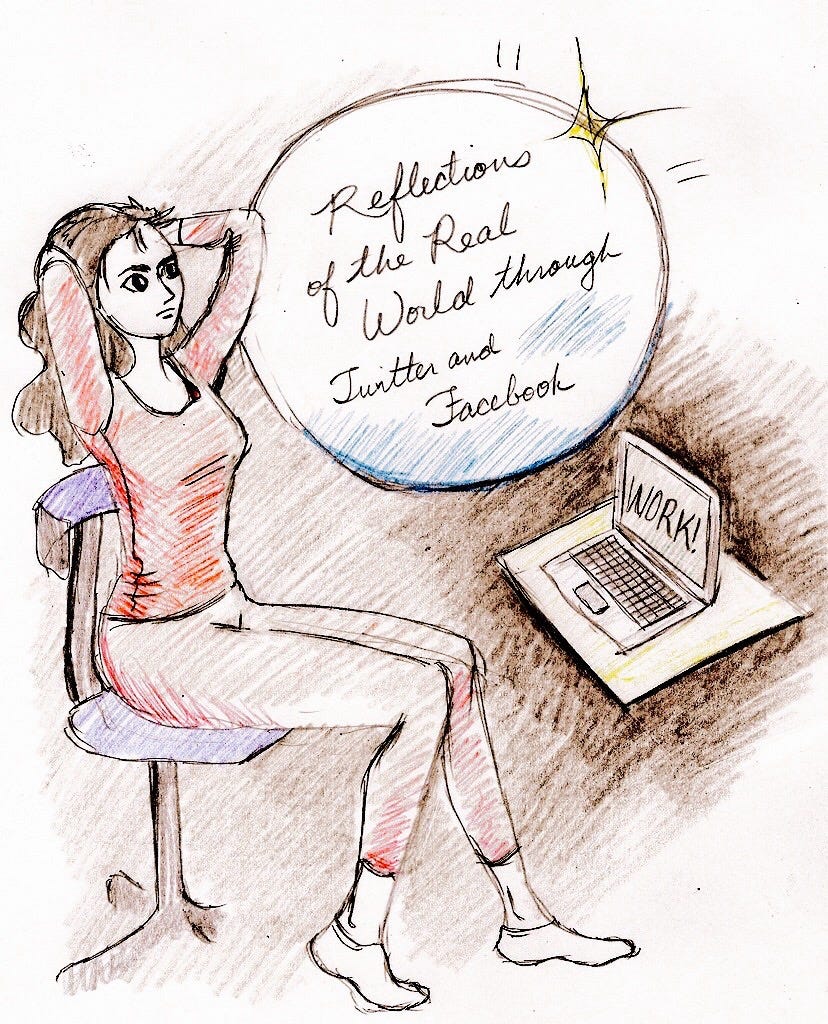 Reflections
of the Real
World through
Twitter and
Facebook
WORK!